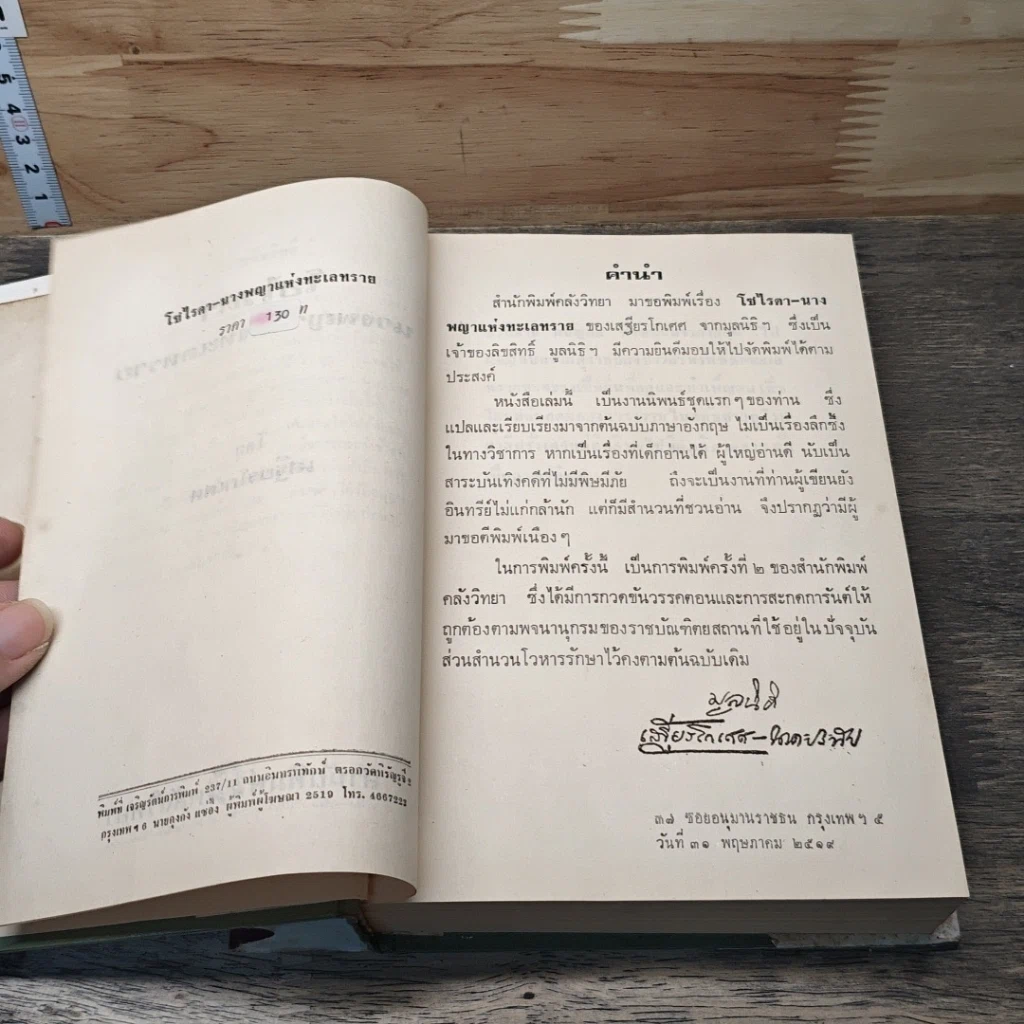 5
4
3
2
1
โซไรดา-นางพญาแห่งทะเลทราย
ราคา 130 บ
พิมพ์ที่ เจริญรัตน์การพิมพ์ 237/11 ถนนอินทรพิทักษ์ ตรอกวัดหิรัญรูจี 2
กรุงเทพฯ 6 นายคุงกัง แซ่อึ้ง ผู้พิมพ์ผู้โฆษณา 2519 โทร. 4667223
คำนำ
สำนักพิมพ์คลังวิทยา มาขอพิมพ์เรื่อง โซไรดา-นาง
พญาแห่งทะเลทราย ของเสฐียรโกเศศ จากมูลนิธิฯ ซึ่งเป็น
เจ้าของลิขสิทธิ์ มูลนิธิฯ มีความยินดีมอบให้ไปจัดพิมพ์ได้ตาม
ประสงค์
หนังสือเล่มนี้ เป็นงานนิพนธ์ชุดแรกๆของท่าน ซึ่ง
แปลและเรียบเรียงมาจากต้นฉบับภาษาอังกฤษ ไม่เป็นเรื่องลึกซึ้ง
ในทางวิชาการ หากเป็นเรื่องที่เด็กอ่านได้ ผู้ใหญ่อ่านดี นับเป็น
สาระบันเทิงคดีที่ไม่มีพิษมีภัย ถึงจะเป็นงานที่ท่านผู้เขียนยัง
อินทรีย์ไม่แก่กล้านัก แต่ก็มีสำนวนที่ชวนอ่าน จึงปรากฏว่ามีผู้
มาขอตีพิมพ์เนืองๆ
ในการพิมพ์ครั้งนี้ เป็นการพิมพ์ครั้งที่ ๒ ของสำนักพิมพ์
คลังวิทยา ซึ่งได้มีการกวดขันวรรคตอนและการสะกดการันต์ให้
ถูกต้องตามพจนานุกรมของราชบัณฑิตยสถานที่ใช้อยู่ในปัจจุบัน
ส่วนสำนวนโวหารรักษาไว้คงตามต้นฉบับเดิม
มูลนิธิ
เสฐียรโกเศศ-นาคะประทีป
๓๗ ซอยอนุมานราชธน กรุงเทพฯ ๕
วันที่ ๓๑ พฤษภาคม ๒๕๑๙